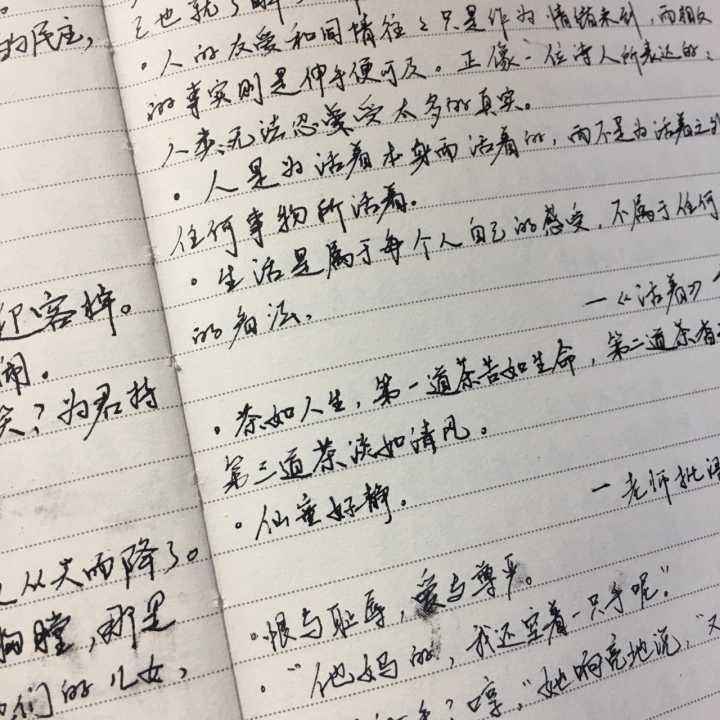 的民主，
迎客棹。
闹。
笑？为君持
从天而降了。
胸膛，那是
们的儿女，
己也就了解
·人的友爱和同情往往只是作为情绪来到，而相反
的事实则是伸手便可及。正像一位诗人所表达的：
人类无法忍受太多的真实。
·人是为活着本身而活着的，而不是为活着之外
任何事物所活着。
·生活是属于每个人自己的感受，不属于任何
的看法。
—《活着》
·茶如人生，第一道茶苦如生命，第二道茶香
第三道茶淡如清风。
·仙童好静。
—老师批语
·恨与耻辱，爱与尊严。
·“他妈的，我还空着一只手呢。”
？哼，”她响亮地说，“